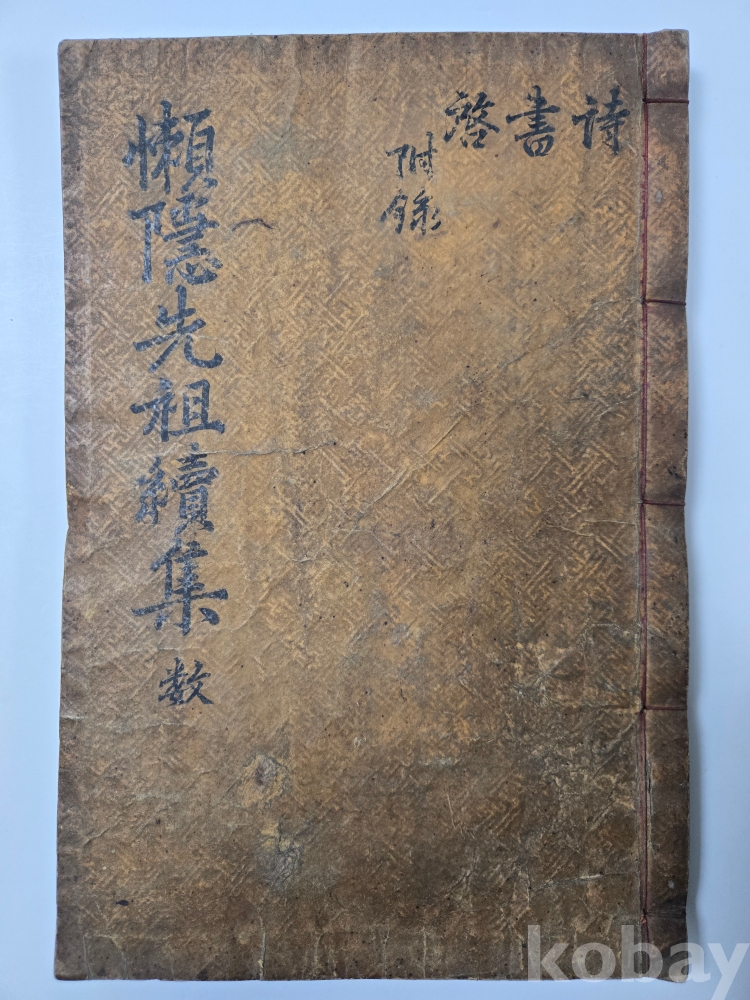 詩
書
啓
附錄
懶隱先祖續集 数
kobay